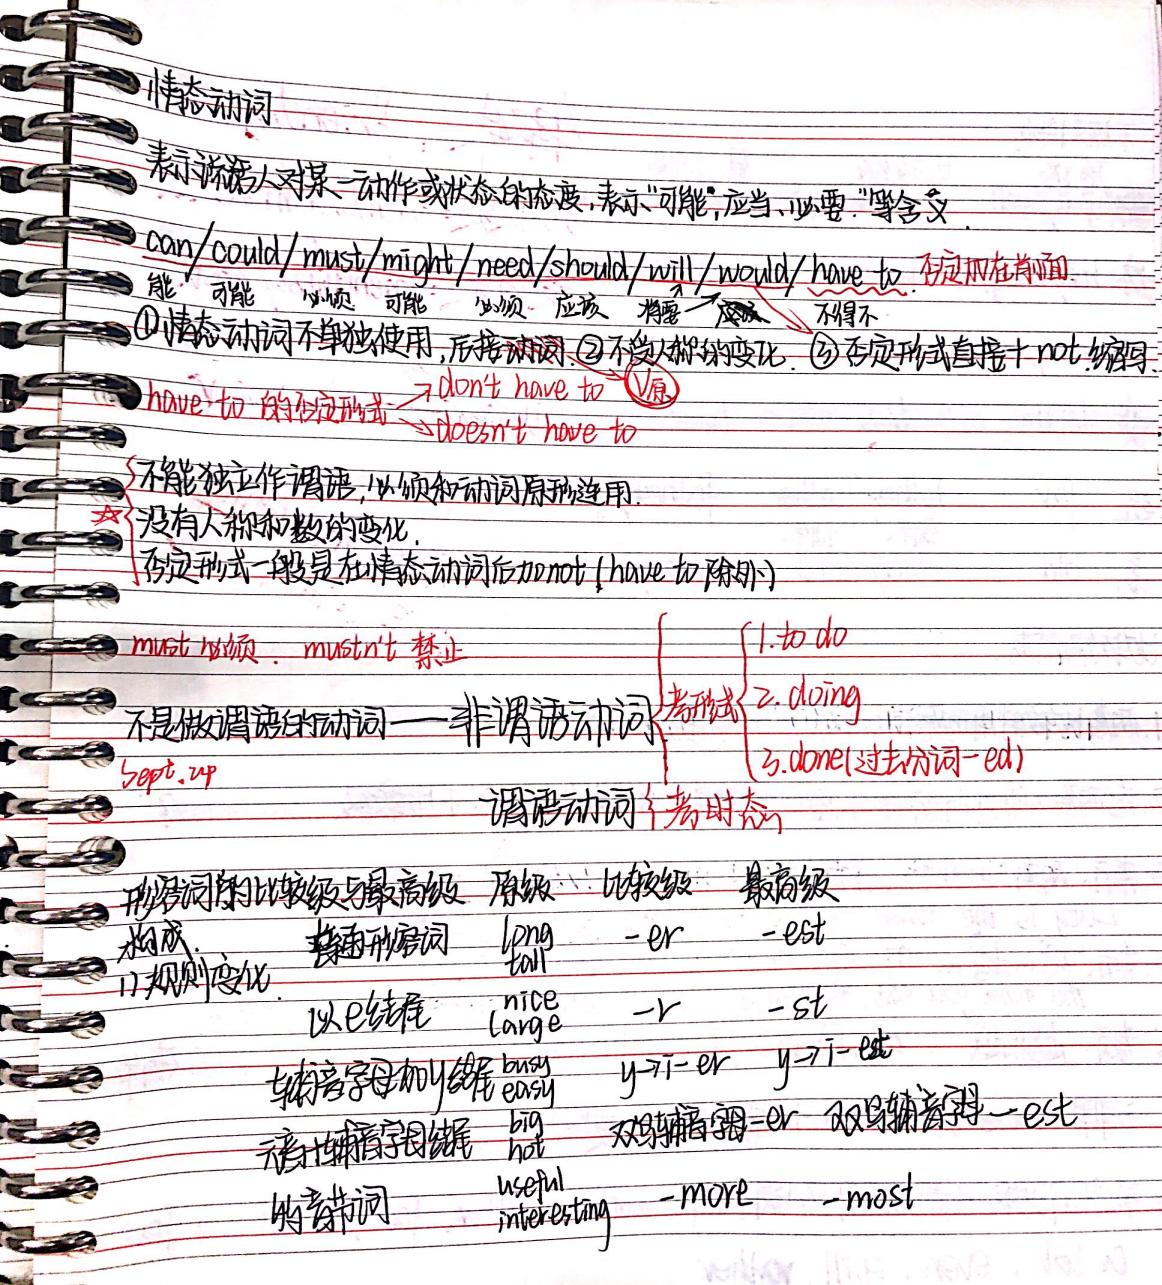 情态动词
表示说话人对某一动作或状态的态度,表示"可能",应当、必要"等含义
can/could/must/might/need/should/will/would/have to. 否定加在前面.
能 可能 必须 可能 必须 应该 将要 不得不
①情态动词不单独使用,后接动词. ②不受人称的变化. ③否定形式直接+not.缩写.
have to 的否定形式 don't have to V原
doesn't have to
不能独立作谓语,必须和动词原形连用.
没有人称和数的变化.
否定形式一般是在情态动词后加not(have to除外)
must 必须. mustn't 禁止
1.to do
不是做谓语的动词——非谓语动词 考形式 2.doing
3.done(过去分词-ed)
Sept.24
谓语动词 考时态
形容词的比较级与最高级 原级 比较级 最高级
构成. 普通形容词 long tall -er -est
1)规则变化.
以e结尾 nice large -r -st
辅音字母加y结尾 busy easy y→i-er y→i-est
元音+辅音字母结尾 big hot 双写辅音字母-er 双写辅音字母-est
多音节词 useful interesting -more -most